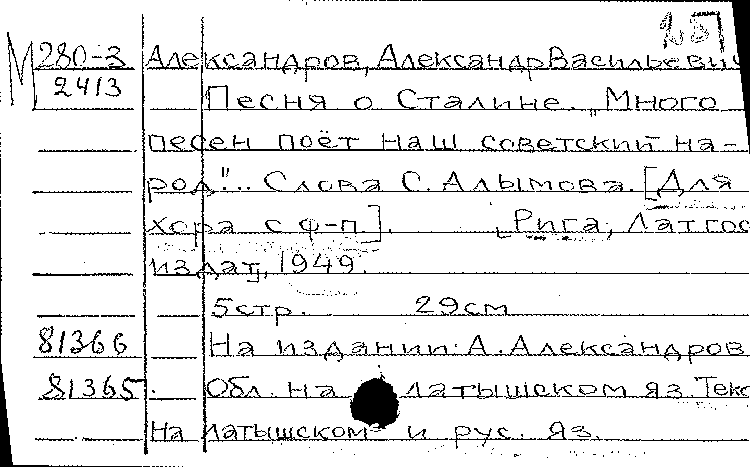 М 280-3 Александров, Александр Васильевич
2413 Песня о Сталине. „Много
песен поёт наш советский на-
род"... Слова С. Алымова. [Для
хора с ф-п.]. [Рига, Латгос
издат], 1949.
5 стр. 29 см
81366 На издании: А. Александров
81365 Обл. на латышском яз. Текс
На латышском и рус. яз.